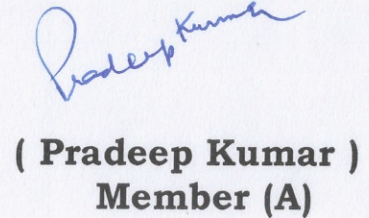 Pradeep Kumar
( Pradeep Kumar )
Member (A)